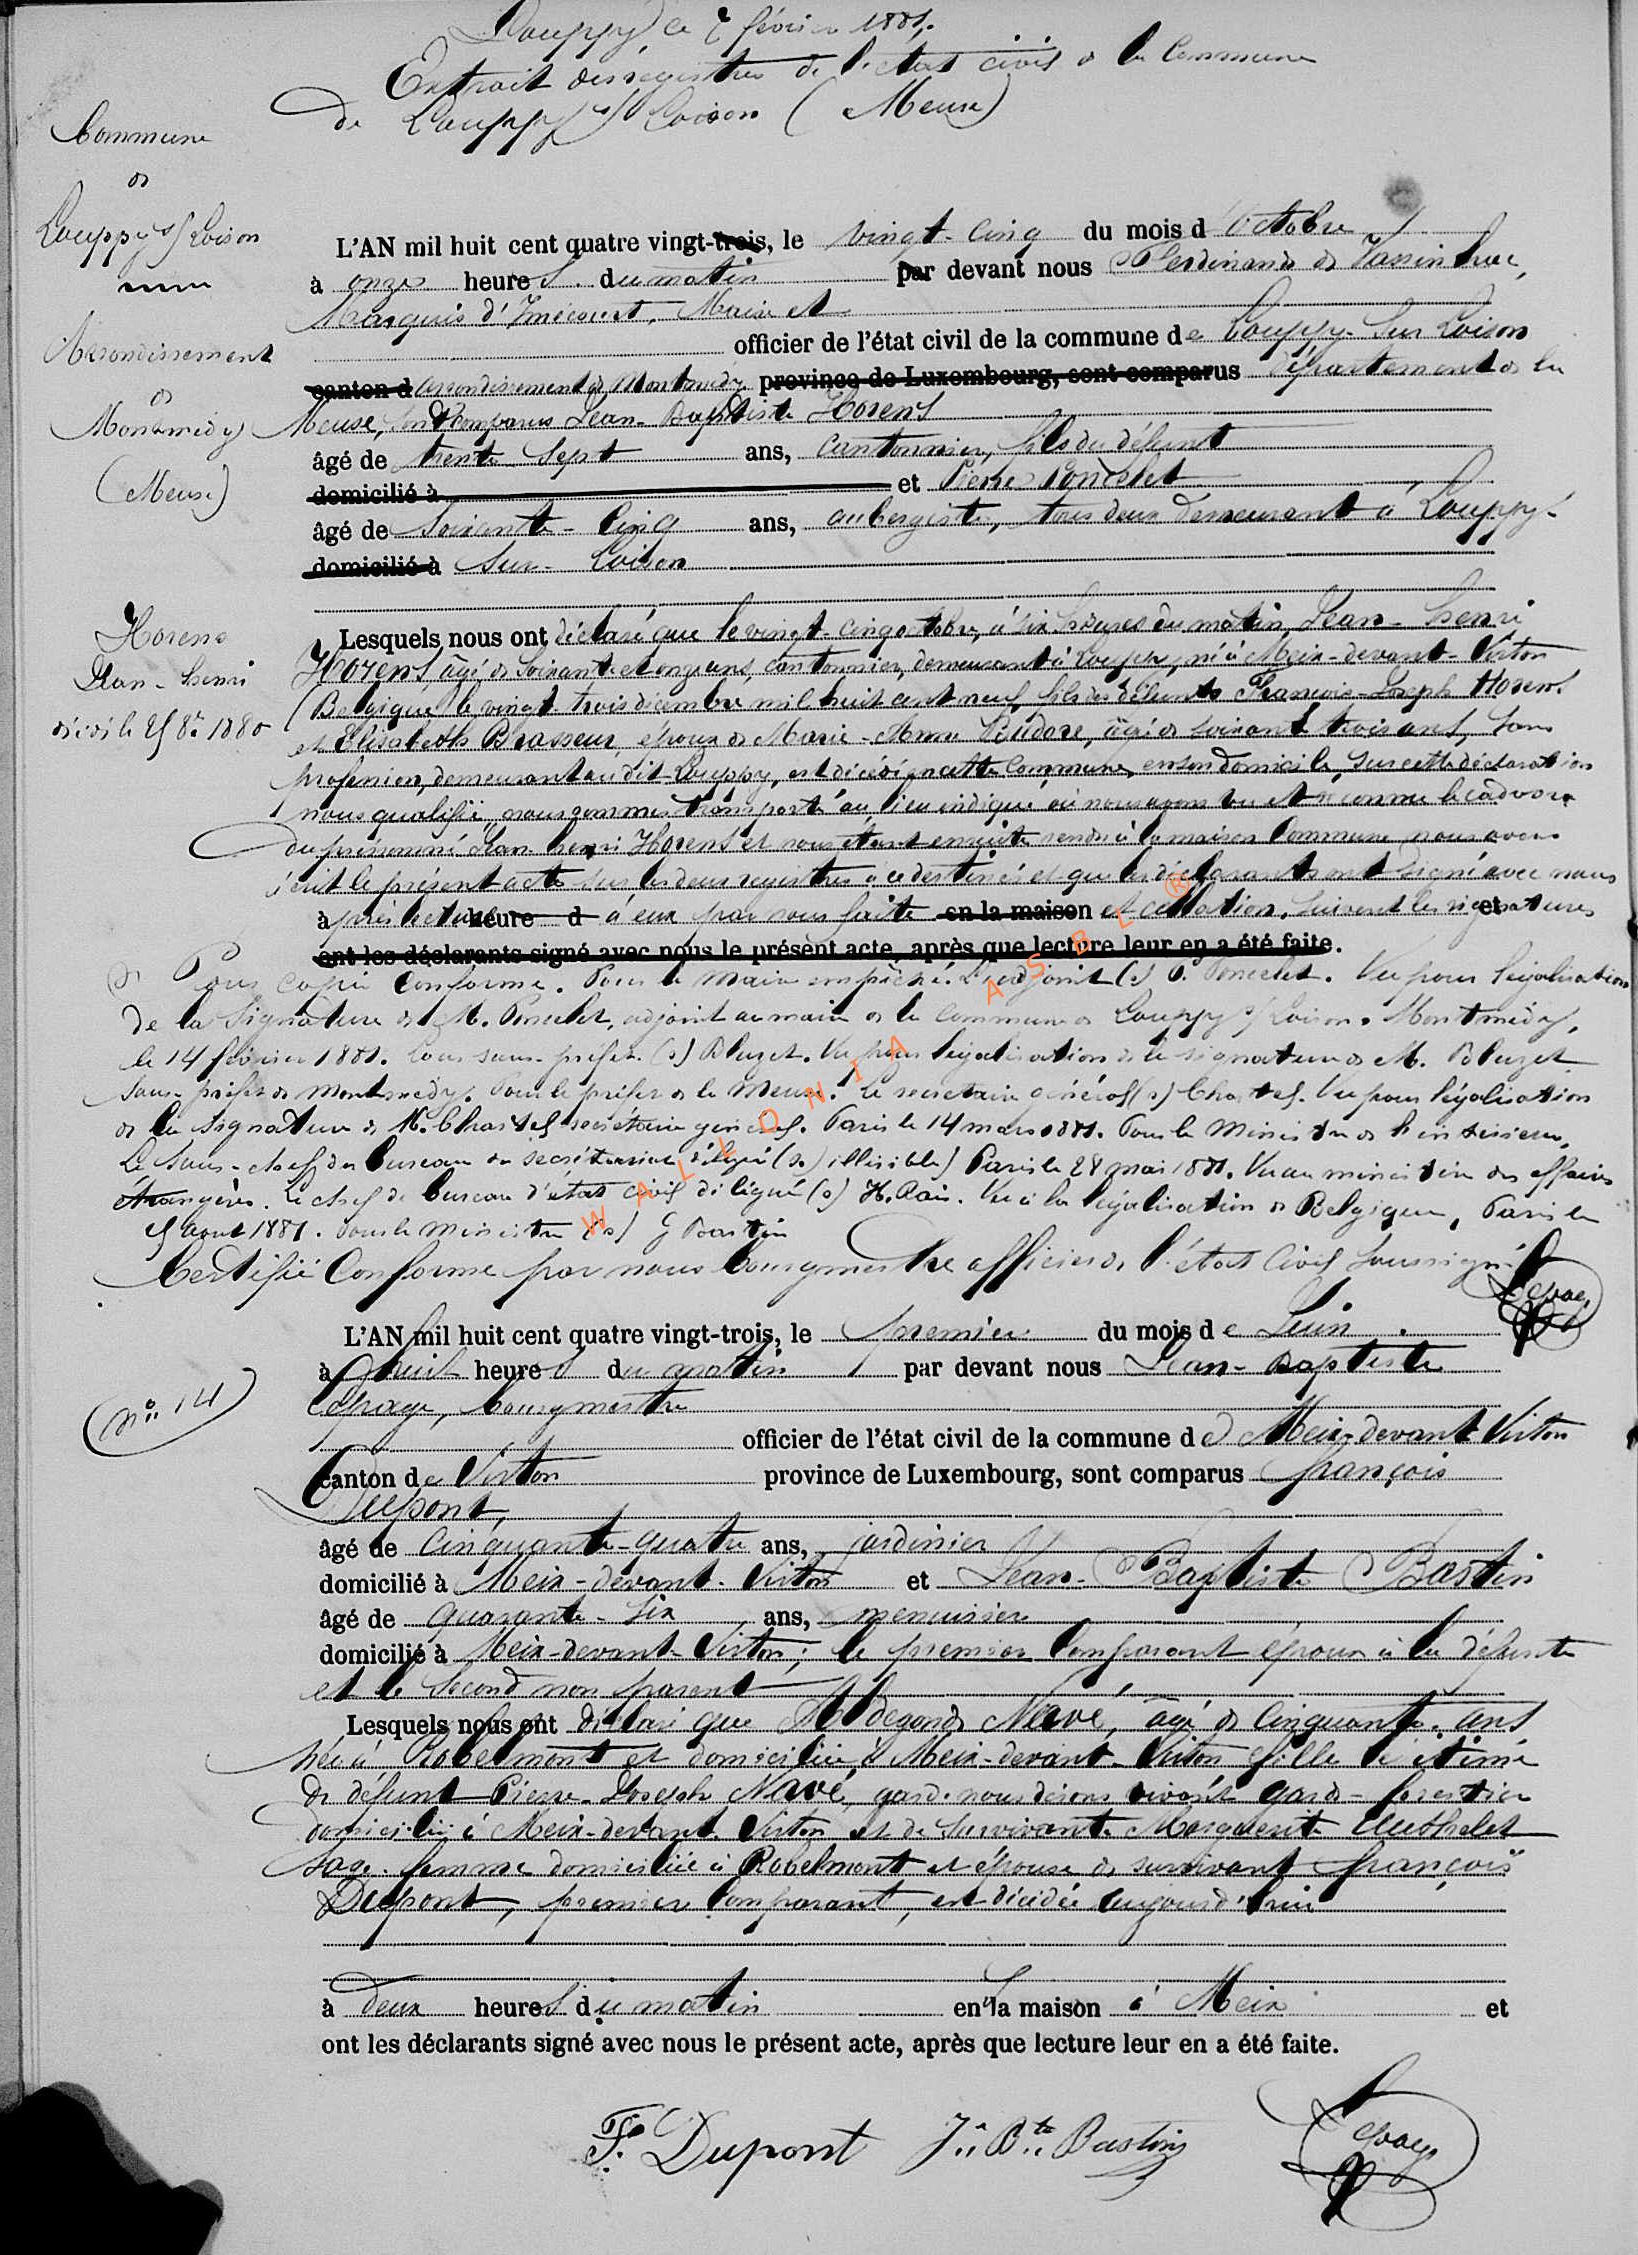 Louppy ce 7 février 1881.
Extrait des registres de l'état civil de la Commune
de Louppy s/ Loison (Meuse)
Commune
de
Louppy s/ Loison
Arrondissement
de
Montmédy
(Meuse)
L'AN mil huit cent quatre vingt-trois, le vingt-cinq du mois d'octobre
à onze heures du matin par devant nous Ferdinand de Vassinhac,
Marquis d'Imécourt, Maire et
officier de l'état civil de la commune de Louppy-sur Loison
canton d arrondissement de Montmédy province de Luxembourg, sont comparus département de la
Meuse, sont comparus Jean-Baptiste Horens
âgé de trente sept ans, cantonnier, fils du défunt
domicilié à et Pierre Poncelet
âgé de soixante-cinq ans, aubergiste, tous deux demeurant à Louppy-
domicilié à sur-Loison
Horens
Jean-henri
décédé le 25 8bre 1880
Lesquels nous ont déclaré que le vingt-cinq octobre, à six heures du matin Jean-henri
Horens, âgé de soixante et onze ans, cantonnier, demeurant à Louppy, né à Meix-devant-Virton
Belgique le vingt trois décembre mil huit cent neuf, fils des défunts François-Joseph Horens
et Elisabeth Brasseur, époux de Marie-Anne Pidore, âgée de soixante trois ans, sans
profession, demeurant au dit Louppy, est décédé en cette commune, en son domicile, sur cette déclaration
nous qualifié, nous sommes transporté au lieu indiqué où nous avons vu et reconnu le cadavre
du prénommé Jean henri Horens et nous étant ensuite rendu à la maison Commune nous avons
écrit le présent acte sur les deux registres à ce destinés et que les déclarants ont signé avec nous
après lecture heure d à eux par nous faite en la maison et collation. Suivent les signatures et
ont les déclarants signé avec nous le présent acte, après que lecture leur en a été faite.
Pour copie conforme. Pour le Maire empêché. L'adjoint (s) P. Poncelet. Vu pour légalisation
de la signature de M. Poncelet, adjoint au maire de la commune de Louppy s/ Loison. Montmédy,
le 14 février 1881. Le sous-préfet. (s) Bluzet. Vu pour légalisation de la signature de M. Bluzet
sous-préfet de Montmédy. Pour le préfet de la Meuse. Le secrétaire général (s) Chastel. Vu pour légalisation
de la signature de M. Chastel secrétaire général. Paris le 14 mars 1881. Pour le Ministre de l'intérieur,
Le sous-chef du bureau du secrétariat délégué (s.) illisible) Paris le 28 mai 1881. Vu au ministère des affaires
étrangères. Le chef de bureau d'état civil délégué (s) H. . Vu à la légalisation de Belgique, Paris le
5 août 1881. Pour le Ministre (s)
Certifié Conforme par nous bourgmestre officier de l'état civil soussigné
Lepage
No 14
L'AN mil huit cent quatre vingt-trois, le premier du mois de Juin.
à huit heures du matin par devant nous Jean-Baptiste
Lepage, bourgmestre
officier de l'état civil de la commune de Meix-devant-Virton
canton de Virton province de Luxembourg, sont comparus françois
Dupont,
âgé de cinquante-quatre ans, jardinier
domicilié à Meix-devant-Virton et Jean-Baptiste Bastin
âgé de quarante-six ans, menuisier
domicilié à Meix-devant-Virton; le premier comparant époux à la défunte
et le second non parent
Lesquels nous ont déclaré que Aldegonde Navé, âgée de cinquante ans
née à Robelmont et domiciliée à Meix-devant-Virton fille légitime
de défunt Pierre-Joseph Navé, garde nous disons vivant garde-forestier
domicilié à Meix-devant-Virton et de survivante Marguerite Authelet
sage-femme domiciliée à Robelmont et épouse de survivant françois
Dupont, premier comparant, est décédée aujourd'hui
à deux heures du matin en la maison à Meix et
ont les déclarants signé avec nous le présent acte, après que lecture leur en a été faite.
F. Dupont Jn Bte Bastin Lepage
WALLONIA ASBL ®